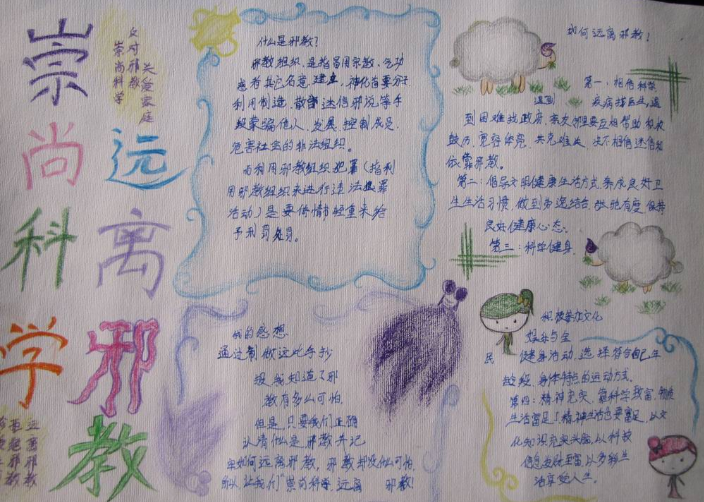 崇尚科学
远离邪教
反对邪教
崇尚科学
关爱家庭
什么是邪教?
邪教组织,是指冒用宗教、气功
或者其它名义建立、神化首要分子
利用制造、散布迷信邪说等手
段蒙骗他人、发展、控制成员、
危害社会的非法组织。
利用邪教组织犯罪(指利
用邪教组织来进行违法犯罪
活动)是要
予刑罚处身。
我的感想
通过制做这此手抄
报我知道了邪
教有多么可怕,
但是,只要我们正确
认清什么是邪教并记
如何远离邪教,邪教却没什么可怕,
所以让我们崇尚科学,远离 邪教
如何远离邪教!
第一:相信科学
有病
遇
到困难找政府,亲友邻里要互相帮助和
鼓历,宽容体亮,共克难关,决不相信迷信
依靠邪教。
第二:倡导文明健康生活方式,养成良好卫
生生活习惯,做到劳逸结合 张驰有度,保持
良好健康心态。
第三:科学健身,
积极参加文化
娱乐与全
民 健身活动,选择符合自己年
龄段、身体特点的运动方式。
第四:精神充实,靠科学致富,物质
生活富足!精神生活也要富足,以文
化知识充实头脑,以科技
信息发展
活享受人生。
远离邪教
拒绝邪教